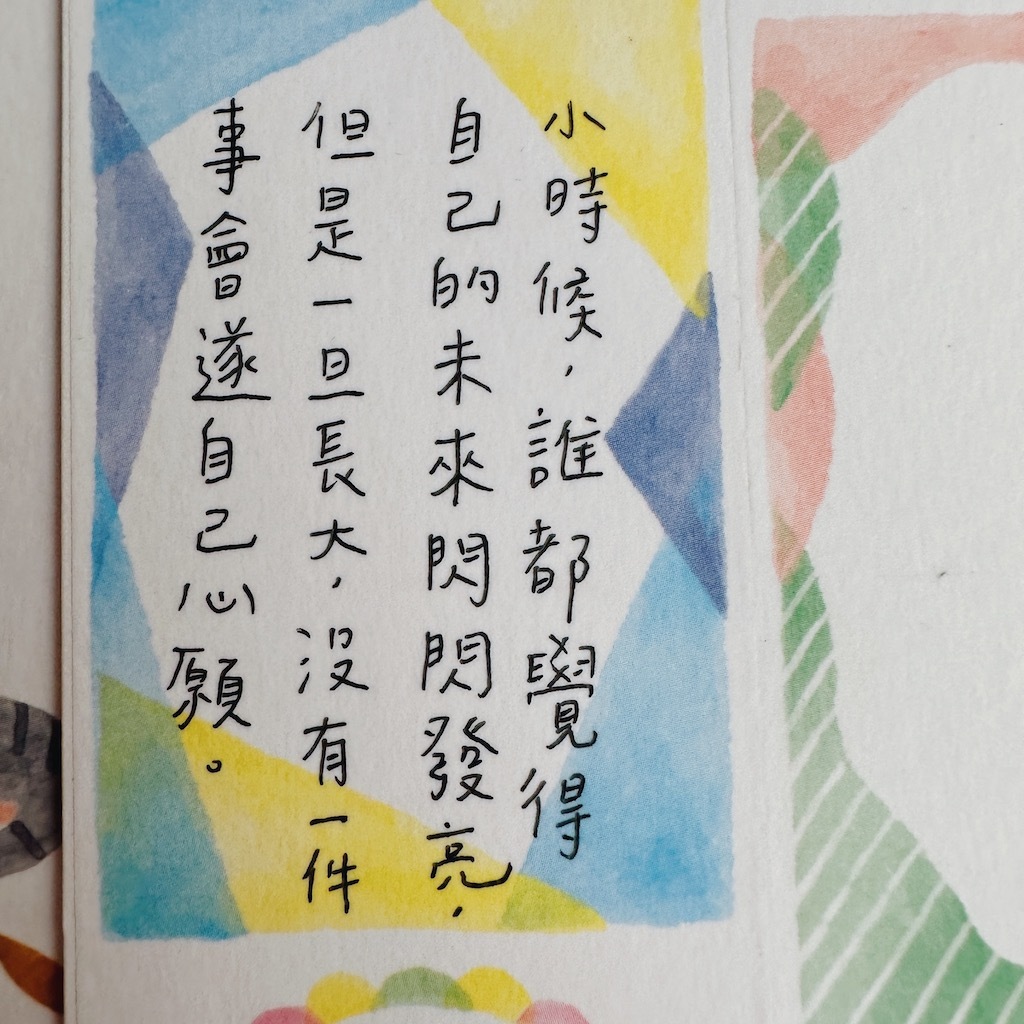 小時候，誰都覺得
自己的未來閃閃發亮，
但是一旦長大，沒有一件
事會遂自己心願。